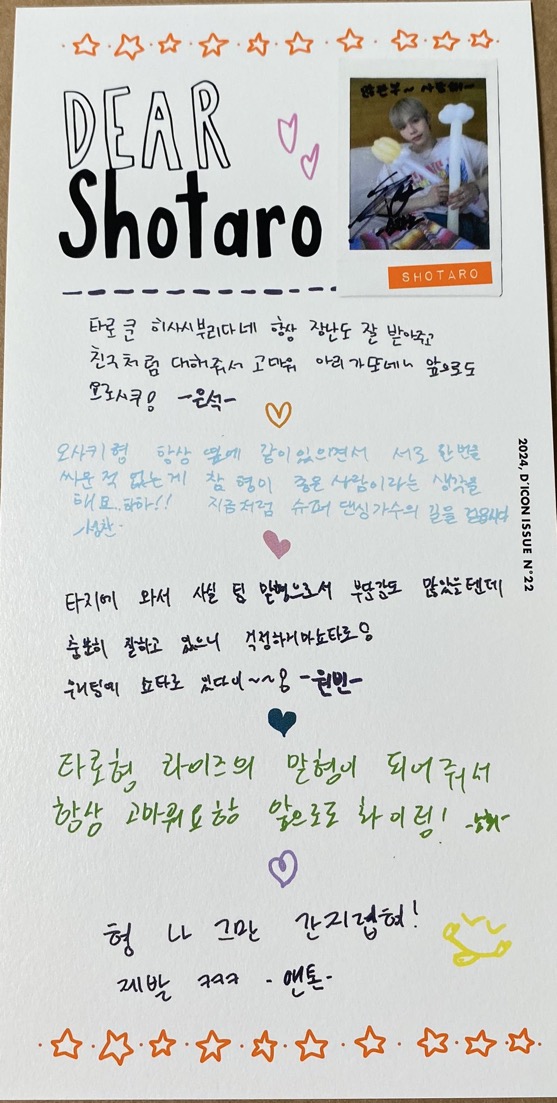 DEAR
Shotaro
SHOTARO
타로 쿤 히사시부리다네 항상 장난도 잘 받아주고
친구처럼 대해줘서 고마워 아리가또네~ 앞으로도
요로시쿠 -은석-
오사키 형 항상 옆에 같이 있으면서 서로 한번을
싸운 적 없는 게 참 형이 좋은 사람이라는 생각을
해요..하하!! 지금처럼 슈퍼 댄싱가수의 길을
성찬-
2024, D'ICON ISSUE N°22
타지에 와서 사실 팀 맏형으로서 부담감도 많았을텐데
충분히 잘하고 있으니 걱정하지마 쇼타로
우리팀에 쇼타로 있다이~~ -원빈-
타로형 라이즈의 맏형이 되어줘서
항상 고마워요 형 앞으로도 화이팅!
형 나 그만 간지럽혀!
제발 ㅋㅋㅋ -앤톤-